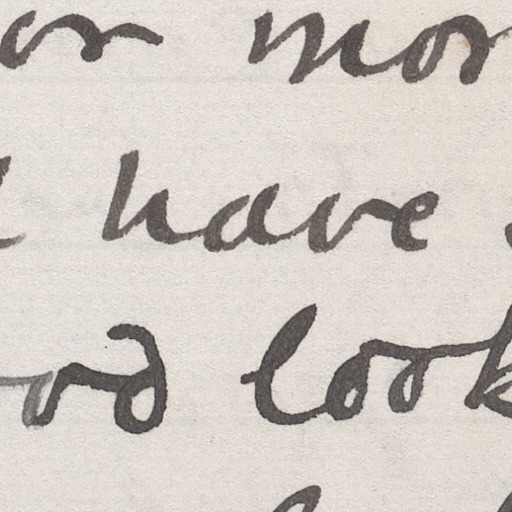 or mor
have
od look